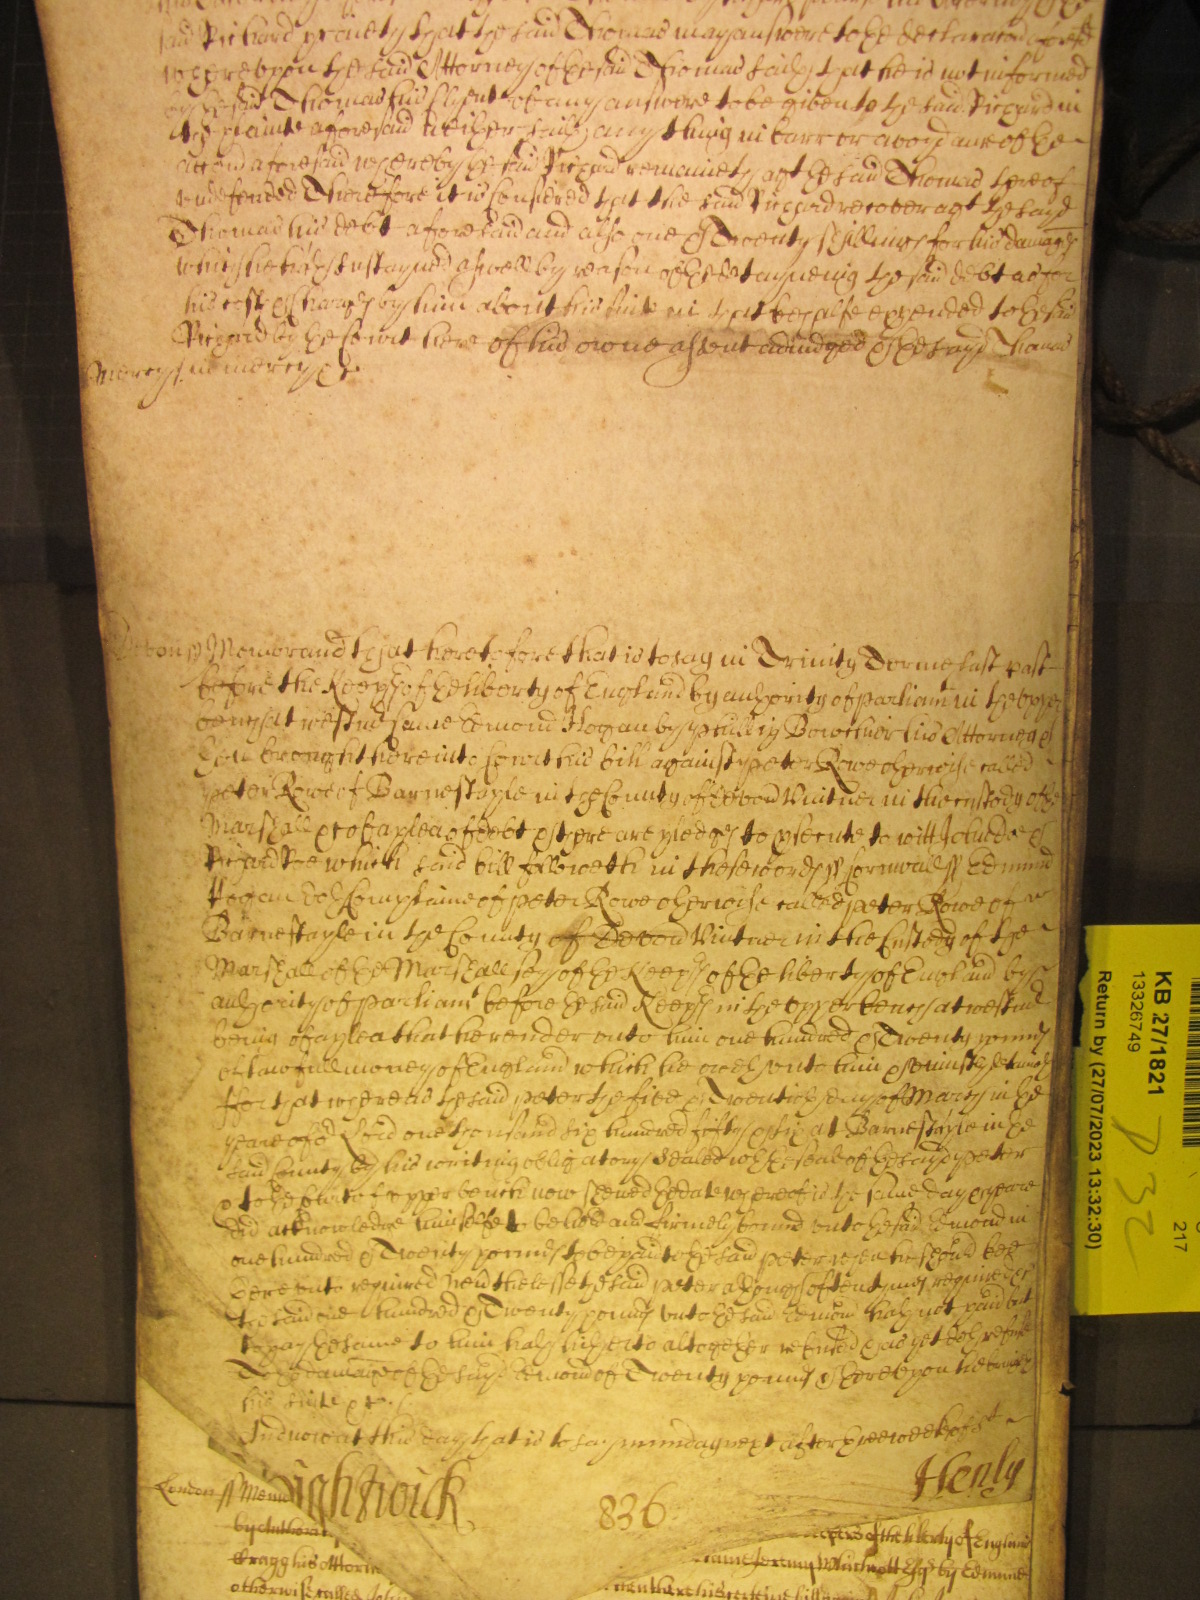 said Richard prayeth that the said Thomas may answere to the declaracon
whereupon the said Attorney of the said Thomas saith that he is not informed
by the said Thomas his Clyent of any answere to be given to the said Richard in
the plainte aforesaid neither saith any thing in barr or avoydance of the
accon aforesaid whereby the said Richard remaineth agt the said Thomas thereof
undefended Therefore it is considered that the said Richard recover agt the sayd
Thomas his debt aforesaid and also one & Twenty shillings for his damages
which he hath sustayned aswell by reason of the detayneing the said debt as for
his costs & charges by him about his suite in that behalfe expended to the said
Richard by the Court here of his owne assent adiudged & the sayd Thomas
Mercy in mercy &c
Devon ss Memorand that heretofore that is to say in Trinity Terme last past
before the Keeps of the liberty of England by authority of parliamt in the upper
bench at westmr came Edmond Hogan by Phillip his Attorney &
brought here into Court his bill against Peter Rowe otherwise called
Peter Rowe of Barnestaple in the County of Devon Vintner in the custody of the
Marshall &c of a plea of debt & there are pledges to prosecute to witt John Doe &
Richard Roe which said bill followeth in these words ss Cornwall ss Edmund
Hogan doth Complaine of Peter Rowe otherwise called Peter Rowe of
Barnestaple in the County of Devon Vintner in the Custody of the
Marshall of the Marshallsey of the Keeps of the liberty of England by
authority of parliamt before the said Keeps in the upper bench at westmr
being of a plea that he render unto him one hundred & Twenty pounds
of lawfull money of England which he oweth unto him & uniustly detaineth
For that whereas the said Peter the five & Twentieth day of March in the
yeare of or Lord one thousand six hundred fifty & six at Barnestaple in the
said County by his writing obligatory Sealed wth the seale of the sayd Peter
& to the Court of upper bench now shewed the date whereof is the same day & yeare
did acknowledge himselfe to be held and firmely bound unto the said Edmond in
one hundred & Twenty pounds to be paid to the said Peter when he should bee
thereunto required Neverthelesse the said Peter although often tymes required
the said one hundred & Twenty pounds unto the said Edmond hath not paid but
to pay the same to him hath hitherto altogether refused & as yet doth refuse
To the damage of the sayd Edmond of Twenty pounds & thereupon he bringeth
his suite &c
And now at this day that is to say munday next after three weeks of St
London ss Mem ightwick 836 Henly
by Authori epers of the liberty of England
Cragg his Attorn came Jeremy Whichcott Esqr by Edmund
otherwise called John
KB 27/1821
13326749
Return by (27/07/2023 13:32:30)
217
P 32